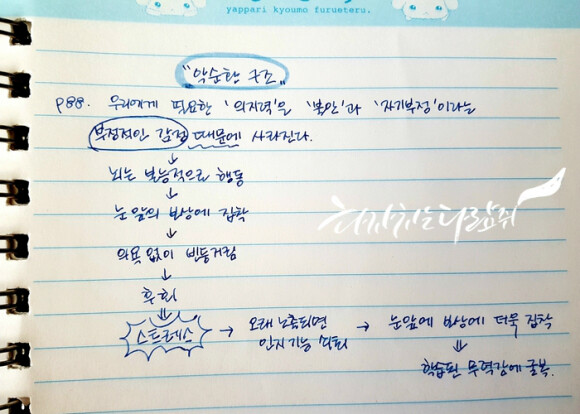 yappari kyoumo furueteru.
"악순환 구조"
p88. 우리에게 필요한 '의지력'을 '불안'과 '자기부정'이라는
부정적인 감정 때문에 사라진다.
↓
뇌는 본능적으로 행동
↓
눈 앞의 보상에 집착
↓
의욕 없이 빈둥거림
↓
후회
⇓
스트레스 → 오래 노출되면 인지기능 쇠퇴 → 눈앞에 보상에 더욱 집착
⇓
학습된 무력감에 굴복.